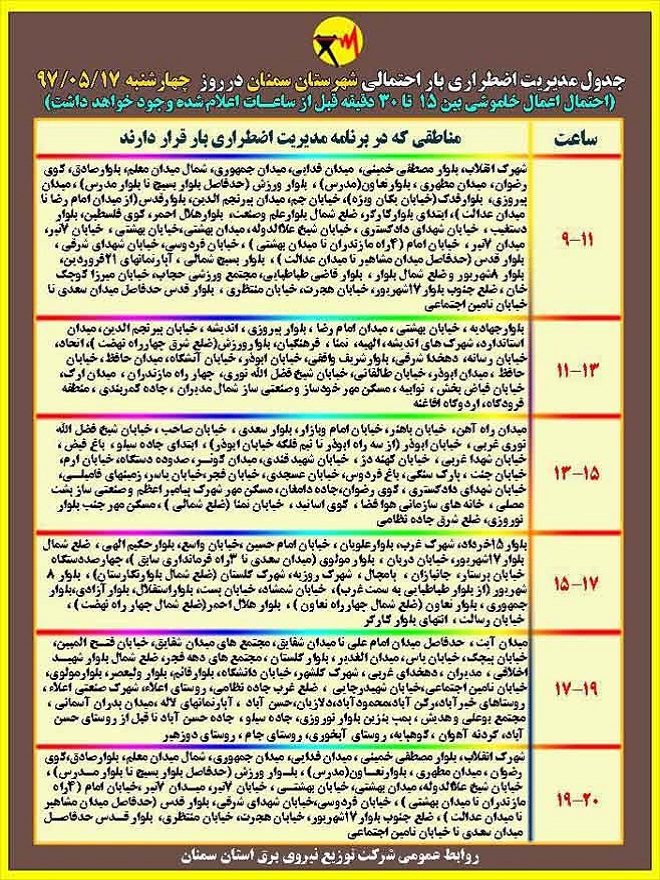 جدول مدیریت اضطراری بار احتمالی شهرستان سمنان در روز چهارشنبه ۹۷/۰۵/۱۷
(احتمال اعمال خاموشی بین ۱۵ تا ۳۰ دقیقه قبل از ساعات اعلام شده وجود خواهد داشت)
ساعت
مناطقی که در برنامه مدیریت اضطراری بار قرار دارند
۹-۱۱
شهرک انقلاب، بلوار مصطفی خمینی، میدان فدایی، میدان جمهوری، شمال میدان معلم، بلوار صادق، کوی
رضوان، میدان مطهری، بلوار تعاون (مدرس)، بلوار ورزش (حدفاصل بلوار بسیج تا بلوار مدرس)، میدان
پیروزی، بلوار فدک (خیابان یگان ویژه)، خیابان جم، میدان پیرنجم الدین، بلوار قدس (از میدان امام رضا تا
میدان عدالت)، ابتدای بلوار کارگر، ضلع شمال بلوار علم وصنعت، بلوار هلال احمر، کوی فلسطین، بلوار
دستغیب، خیابان شهدای دادگستری، خیابان شیخ علاالدوله، میدان بهشتی، خیابان بهشتی، خیابان ۷تیر،
میدان ۷تیر، خیابان امام (۴راه مازندران تا میدان بهشتی)، خیابان فردوسی، خیابان شهدای شرقی،
بلوار قدس (حدفاصل میدان مشاهیر تا میدان عدالت)، بلوار بسیج شمالی، آپارتمانهای ۲۱فروردین،
بلوار ۸شهریور و ضلع شمال بلوار، بلوار قاضی طباطبایی، مجتمع ورزشی حجاب، خیابان میرزا کوچک
خان، ضلع جنوب بلوار ۱۷شهریور، خیابان هجرت، خیابان منتظری، بلوار قدس حدفاصل میدان سعدی تا
خیابان تامین اجتماعی
۱۱-۱۳
بلوار جهادیه، خیابان بهشتی، میدان امام رضا، بلوار پیروزی، اندیشه، خیابان پیرنجم الدین، میدان
استاندارد، شهرک های اندیشه، الهیه، نمتا، فرهنگیان، بلوار ورزش (ضلع شرق چهارراه نهضت)، اتحاد،
خیابان رسانه، دهخدا شرقی، بلوار شریف واقفی، خیابان ابوذر، خیابان آتشگاه، میدان حافظ، خیابان
حافظ، میدان ابوذر، خیابان طالقانی، خیابان شیخ فضل الله نوری، چهار راه مازندران، میدان ارک،
خیابان فیاض بخش، توابیه، مسکن مهر خودساز و صنعتی ساز شمال مدیران، جاده کمربندی، منطقه
فرودگاه، اردوگاه افاغنه
۱۳-۱۵
میدان راه آهن، خیابان باهنر، خیابان امام وبازار، بلوار سعدی، خیابان صاحب، خیابان شیخ فضل الله
نوری غربی، خیابان ابوذر (از سه راه ابوذر تا نیم فلکه خیابان ابوذر)، ابتدای جاده سیلو، باغ فیض،
خیابان شهدا غربی، خیابان کهنه دژ، خیابان شهید قندی، میدان کوثر، صدوده دستگاه، خیابان ارم،
خیابان جنت، پارک سنگی، باغ فردوس، خیابان عسجدی، خیابان فجر، خیابان یاسر، زمینهای فامیلی،
خیابان شهدای دادگستری، کوی رضوان، جاده دامغان، مسکن مهر شهرک پیامبر اعظم و صنعتی ساز پشت
مصلی، خانه های سازمانی هوا فضا، کوی اساتید، خیابان نمتا (ضلع شمالی)، مسکن مهر جنب بلوار
نوروزی، ضلع شرق جاده نظامی
۱۵-۱۷
بلوار ۱۵خرداد، شهرک غرب، بلوار علویان، خیابان امام حسین، خیابان واسع، بلوار حکیم الهی، ضلع شمال
بلوار ۱۷شهریور، خیابان دریان، بلوار مولوی (میدان سعدی تا ۳راه فرمانداری سابق)، چهارصددستگاه
خیابان پرستار، جانبازان، پامچال، شهرک روزیه، شهرک گلستان (ضلع شمال بلوار نگارستان)، بلوار ۸
شهریور (از بلوار طباطبایی به سمت غرب)، خیابان شمشاد، خیابان پست، بلوار استقلال، بلوار آزادی، بلوار
جمهوری، بلوار تعاون (ضلع شمال چهارراه تعاون)، بلوار هلال احمر (ضلع شمال چهار راه نهضت)،
خیابان رسالت، انتهای بلوار کارگر
۱۷-۱۹
میدان آیت، حدفاصل میدان امام علی تا میدان شقایق، مجتمع های میدان شقایق، خیابان فتح المبین،
خیابان پیچک، خیابان یاس، میدان الغدیر، بلوار گلستان، مجتمع های دهه فجر، ضلع شمال بلوار شهید
اخلاقی، مدیران، دهخدای غربی، شهرک گلشهر، خیابان دانشگاه، بلوار قائم، بلوار ولیعصر، بلوار مولوی،
خیابان تامین اجتماعی، خیابان شهیدرجایی، ضلع غرب جاده نظامی، روستای اعلاء، شهرک صنعتی اعلاء،
روستاهای خیرآباد، رکن آباد، محمودآباد، دلازیان، حسن آباد، آپارتمانهای لاله، میدان پدران آسمانی،
مجتمع بوعلی و هدیش، پمپ بنزین بلوار نوروزی، جاده سیلو، جاده حسن آباد تا قبل از روستای حسن
آباد، گردنه آهوان، کوهپایه، روستای آبخوری، روستای جام، روستای دوزهیر
۱۹-۲۰
شهرک انقلاب، بلوار مصطفی خمینی، میدان فدایی، میدان جمهوری، شمال میدان معلم، بلوار صادق، کوی
رضوان، میدان مطهری، بلوار تعاون (مدرس)، بلوار ورزش (حدفاصل بلوار بسیج تا بلوار مدرس)،
خیابان شیخ علاالدوله، میدان بهشتی، خیابان بهشتی، خیابان ۷تیر، میدان ۷تیر، خیابان امام (۴راه
مازندران تا میدان بهشتی)، خیابان فردوسی، خیابان شهدای شرقی، بلوار قدس (حدفاصل میدان مشاهیر
تا میدان عدالت)، ضلع جنوب بلوار ۱۷شهریور، خیابان هجرت، خیابان منتظری، بلوار قدس حدفاصل
میدان سعدی تا خیابان تامین اجتماعی
روابط عمومی شرکت توزیع نیروی برق استان سمنان